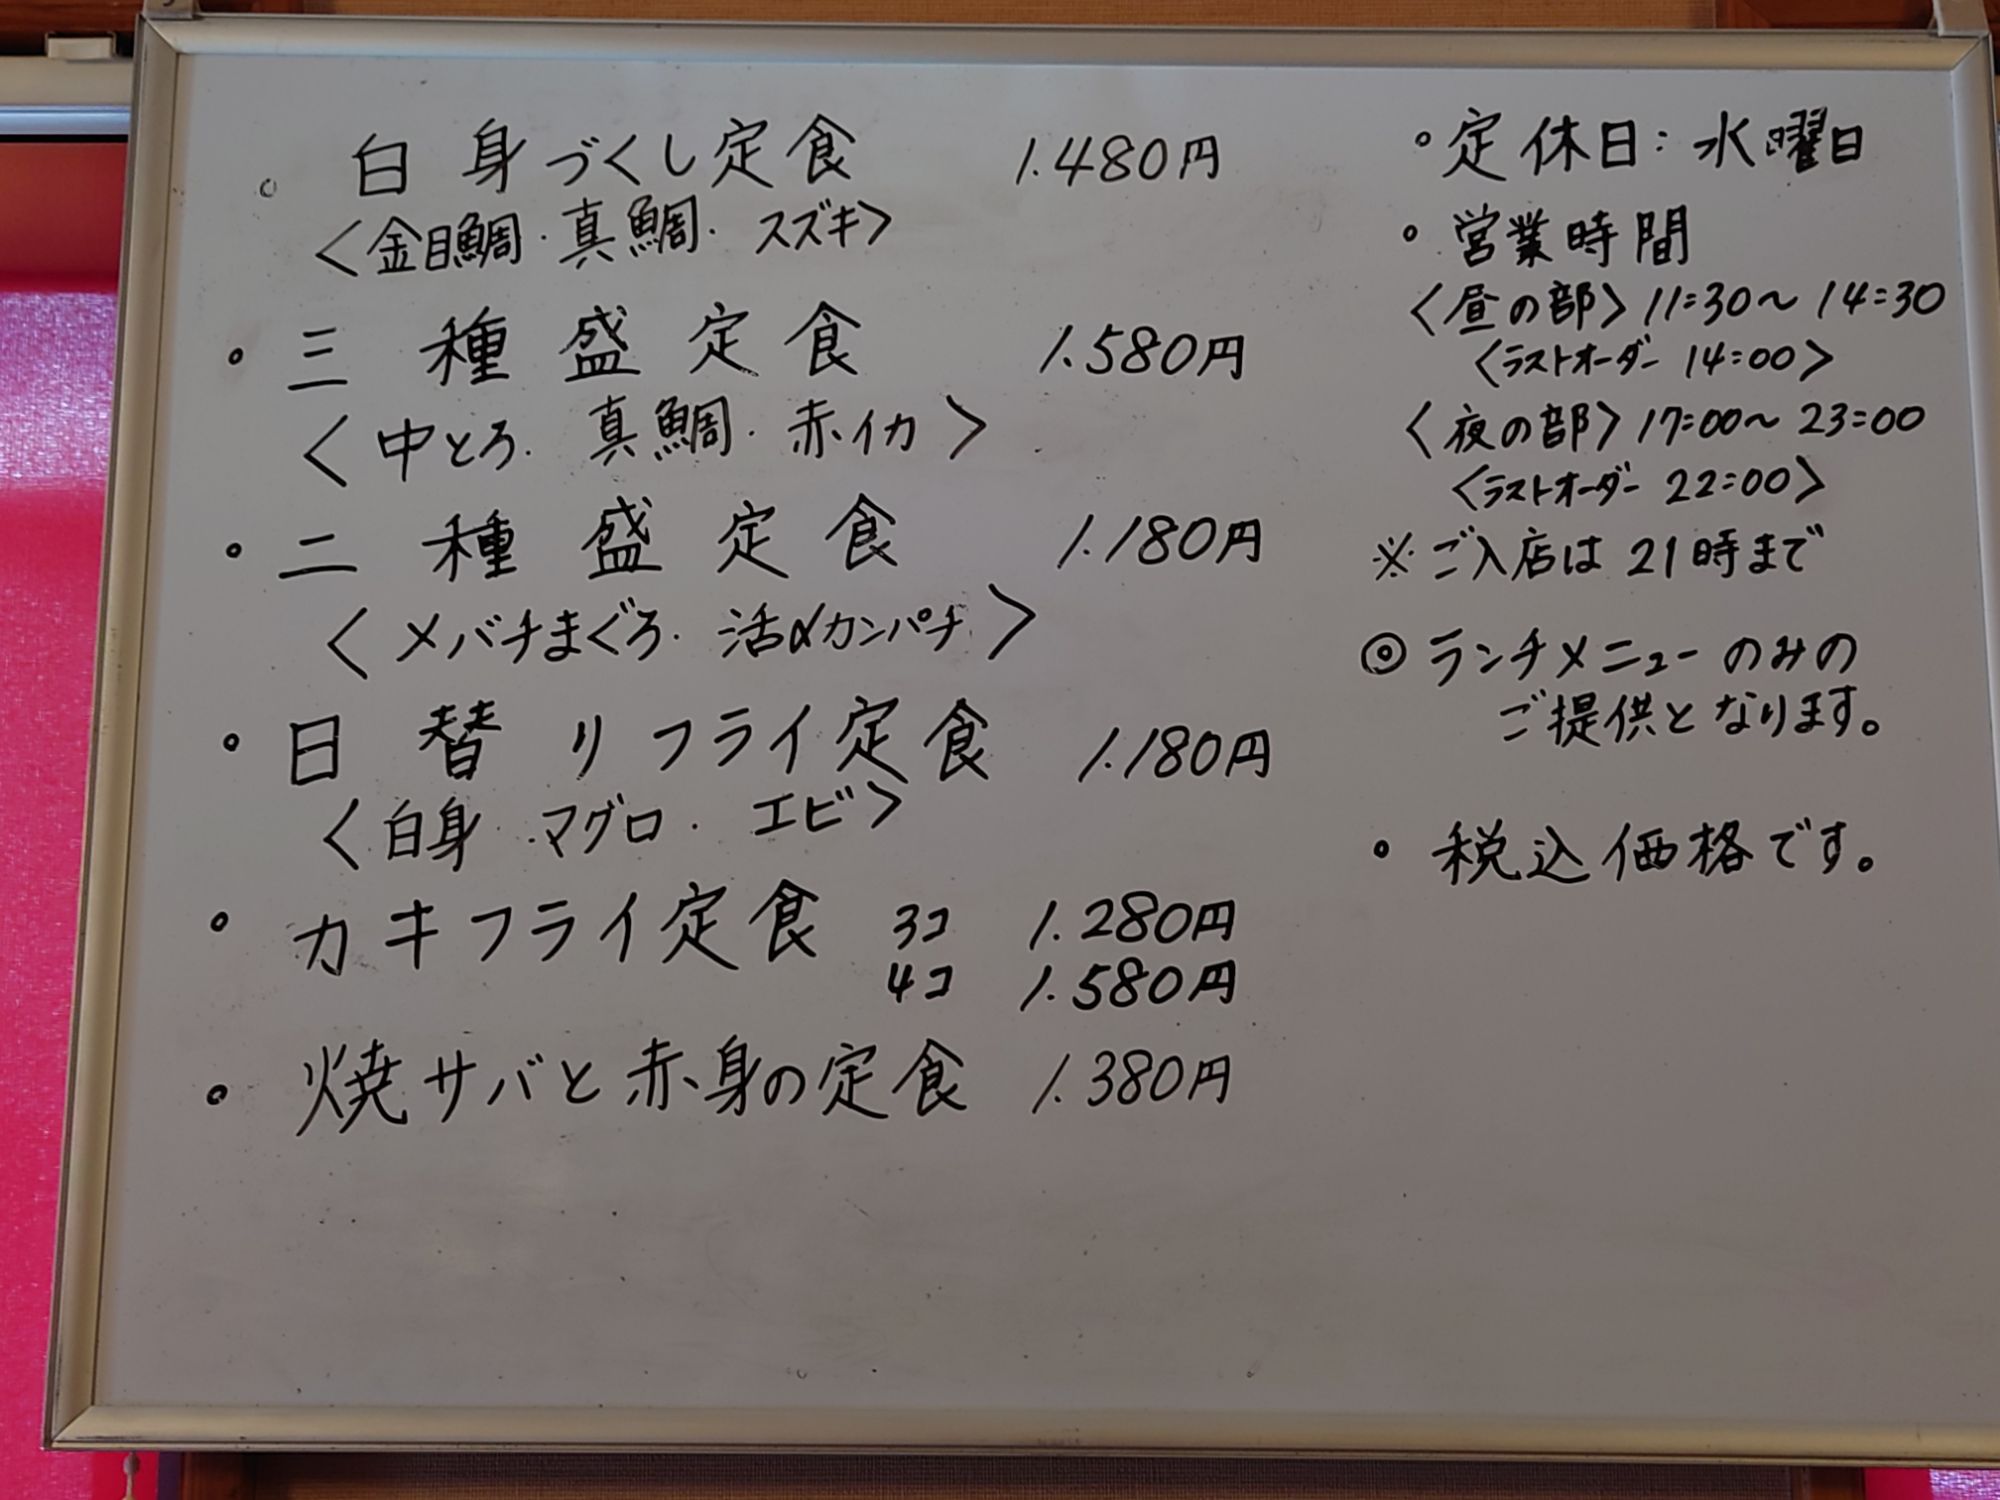 。白身づくし定食 1.480円
〈金目鯛.真鯛.スズキ〉
・三種盛定食 1.580円
〈中とろ.真鯛.赤イカ〉
・二種盛定食 1.180円
〈メバチまぐろ.活〆カンパチ〉
・日替りフライ定食 1.180円
〈白身.マグロ.エビ〉
・カキフライ定食 3コ 1.280円
4コ 1.580円
・焼サバと赤身の定食 1.380円
・定休日:水曜日
・営業時間
〈昼の部〉11:30〜14:30
〈ラストオーダー 14:00〉
〈夜の部〉17:00〜23:00
〈ラストオーダー 22:00〉
※ご入店は21時まで
◎ランチメニューのみの
ご提供となります。
・税込価格です。